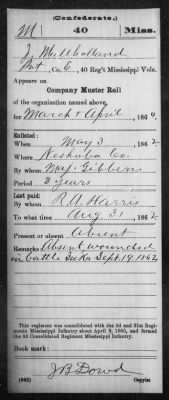 (Confederate.)
M 40 Miss.
J. Mulholland
Pvt, Co. C, 40 Reg't Mississippi Vols.
Appears on
Company Muster Roll
of the organization named above,
for March & April, 1864.
Enlisted:
When May 3, 1862
Where Neshoba Co.
By whom Maj. Gibbens
Period 3 years
Last paid:
By whom R. A. Harris
To what time Aug 31, 1862
Present or absent Absent
Remarks Absent, wounded
in battle Iuka Sept. 19, 1862
This regiment was consolidated with the 3d and 31st Regiments
Mississippi Infantry about April 9, 1865, and formed
the 3d Consolidated Regiment Mississippi Infantry.
Book mark:
(642) J B Dowd
Copyist.